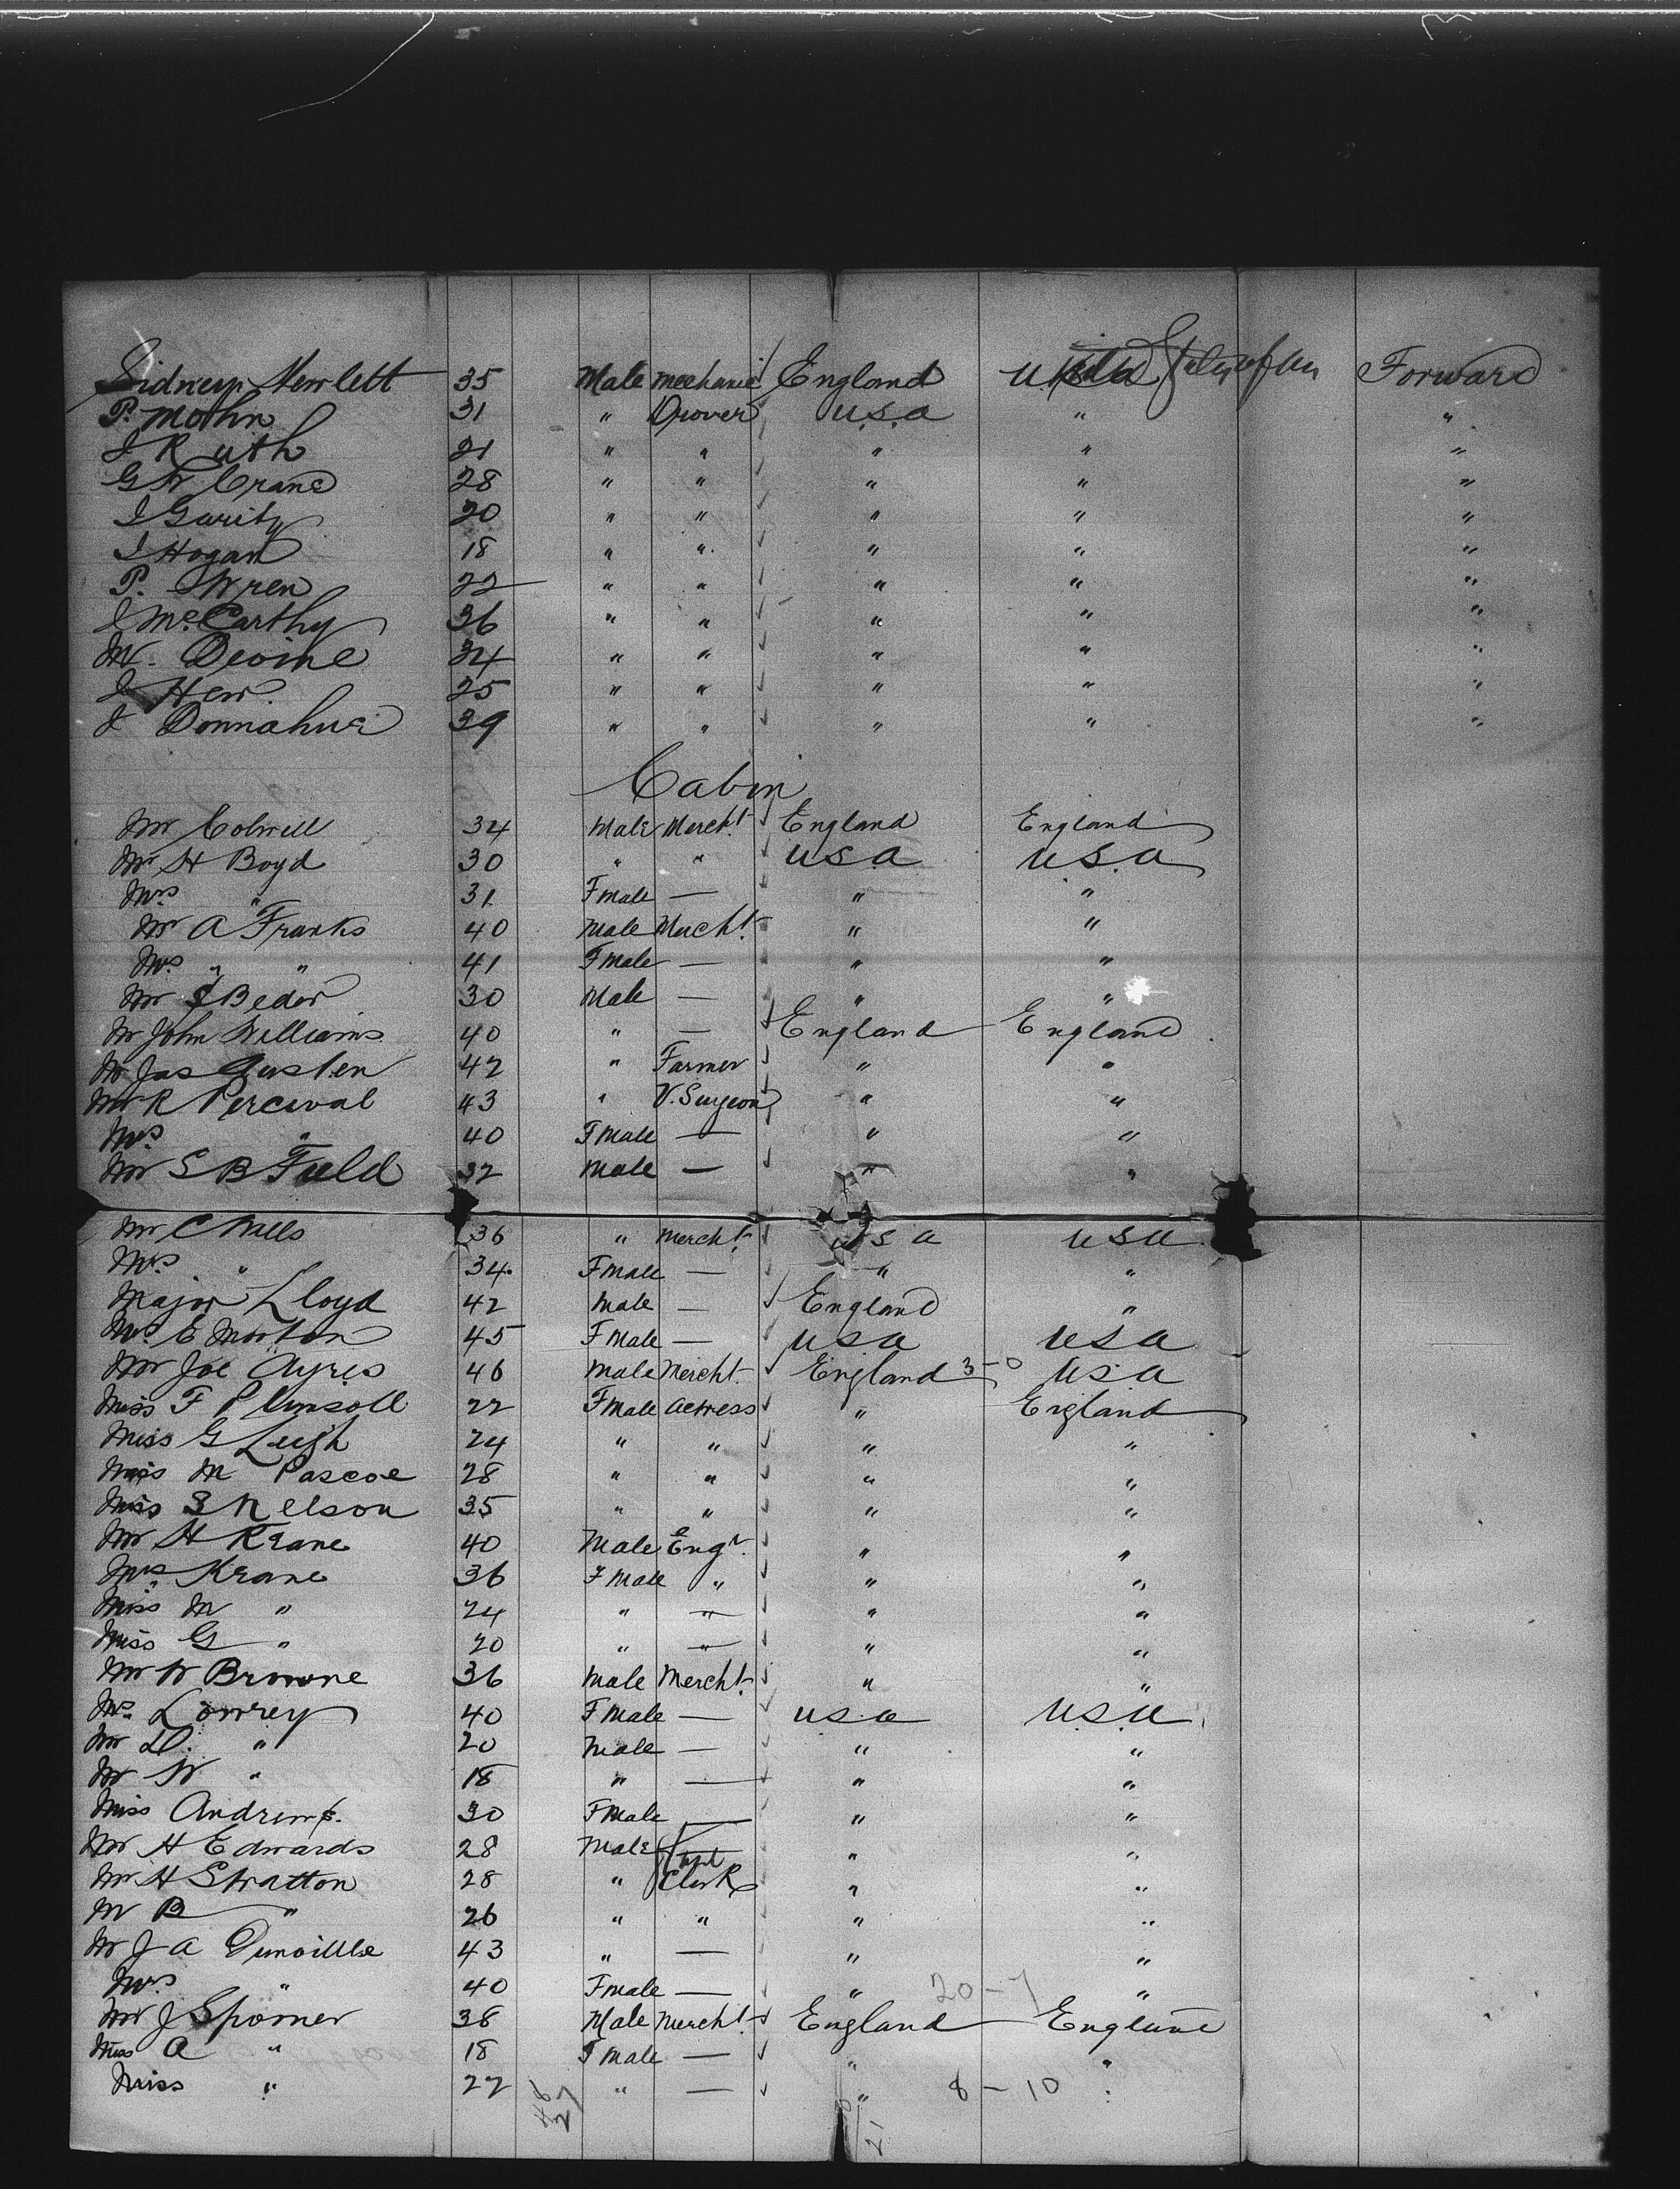 Sidney Hewlett 35 Male Mechanic England United States of Am Forward
P. Mohn 31 " Drover U.S.A " "
J Ruth 21 " " " " "
G W Crane 28 " " " " "
J Garity 20 " " " " "
J Hogan 18 " " " " "
P. Wren 22 " " " " "
J McCarthy 36 " " " " "
M. Devine 34 " " " " "
J Hew 25 " " " " "
J Donnahue 39 " " " " "
Cabin
Mr Colwell 34 Male Mercht England England
Mr H Boyd 30 " " USA U.S.A
Mrs " 31 Fmale — " "
Mr A Franks 40 Male Mercht " "
Mrs " " 41 Fmale — " "
Mr Beder 30 Male — " "
Mr John Williams 40 " — England England
Mr Jas Austen 42 " Farmer " "
Mr R Percival 43 " V. Surgeon " "
Mrs " 40 Fmale — " "
Mr S B Field 32 Male — " "
Mr C Wells 36 " Mercht USA USA
Mrs " 34 Fmale — " "
Major Lloyd 42 Male — England "
Mrs E Morton 45 Fmale — USA USA
Mr Joe Ayres 46 Male Mercht England 3-0 USA
Miss F Plimsoll 22 Fmale Actress " England
Miss G Leigh 24 " " " "
Miss M Pascoe 28 " " " "
Miss S Nelson 35 " " " "
Mr H Keane 40 Male Engr. " "
Mrs Keane 36 Fmale " " "
Miss M " 24 " " " "
Miss G " 20 " " " "
Mr W Browne 36 Male Mercht " "
Mrs Lowrey 40 Fmale — USA U.S.A
Mr D. " 20 Male — " "
Mr W " 18 " — " "
Miss Andrews. 30 Fmale — " "
Mr H Edwards 28 Male " "
Mr H Stratton 28 " Clerk " "
Mr B " 26 " " " "
Mr J A Dunville 43 " — " "
Mrs " 40 Fmale — " 20-7 "
Mr J Spomer 38 Male Mercht England England
Miss A " 18 Fmale — " "
Miss " 22 " — " 8-10 "